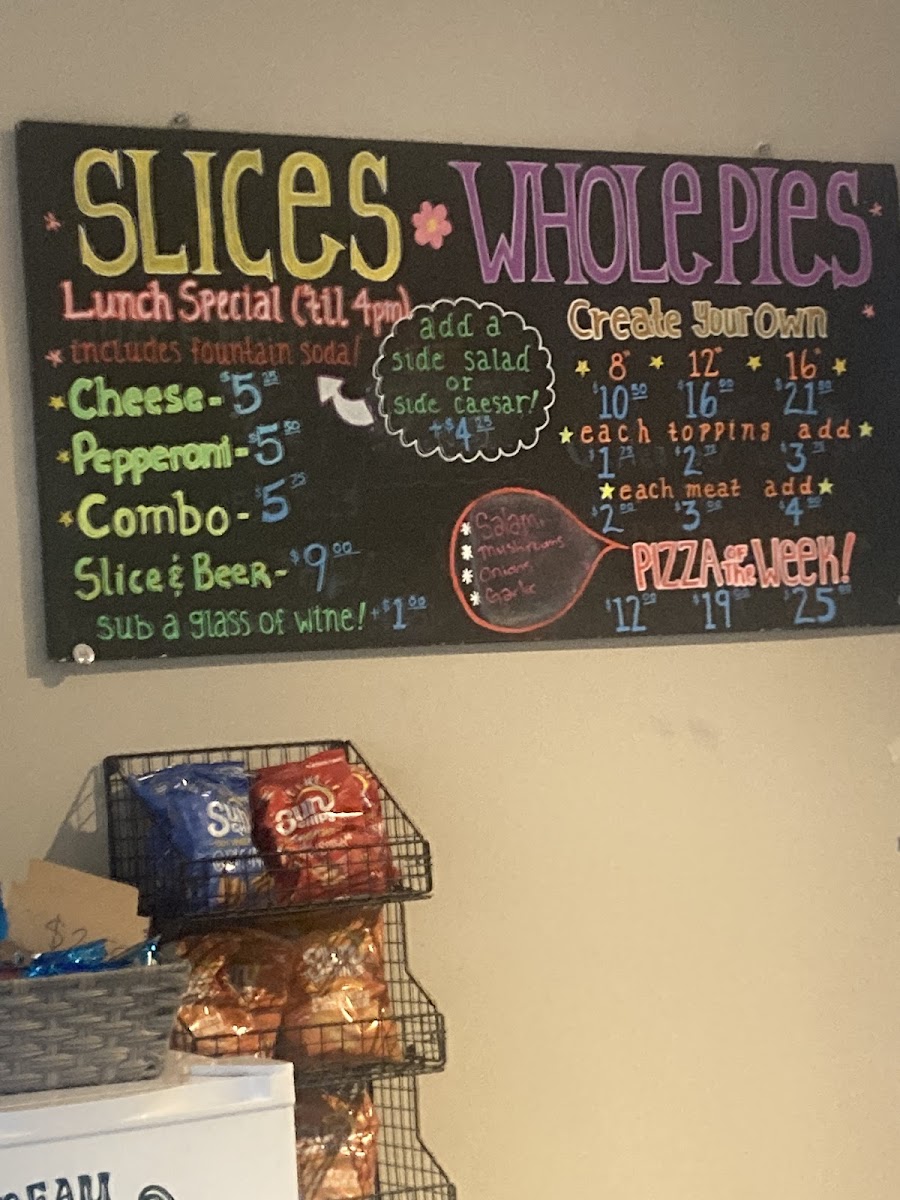 SLICES
Lunch Special ('til 4pm)
* includes fountain soda!
Cheese - $5.25
Pepperoni - $5.50
Combo - $5.75
Slice & Beer - $9.00
sub a glass of wine! +$1.00
add a
side salad
or
side caesar!
+$4.25
WHOLE PIES
Create Your Own
8" 12" 16"
$10.50 $16.00 $21.00
each topping add
$1.75 $2.75 $3.75
each meat add
$2.00 $3.00 $4.00
PIZZA OF The WEEK!
$12.00 $19.00 $25.00
* Salami
* mushrooms
* Onions
* Garlic
Sun
Sun
CHIPS
$2